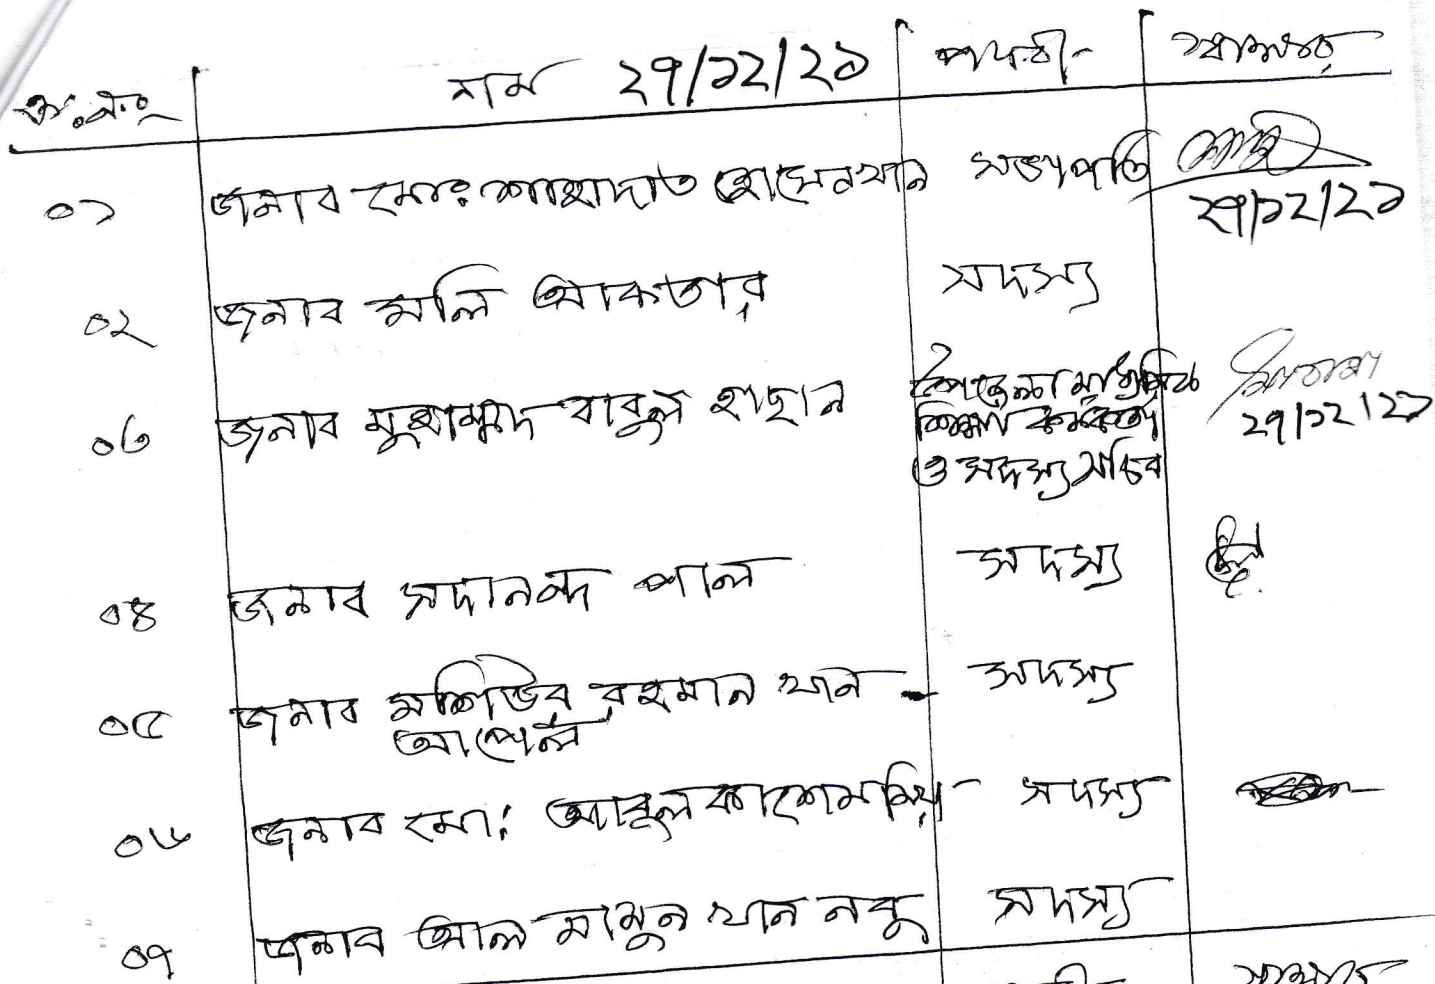 ক্র.নং নাম ২৭/১২/২১ পদবী স্বাক্ষর
০১ জনাব মো: শাহাদাত হোসেন খান সভাপতি
২৭/১২/২১
০২ জনাব মলি আকতার সদস্য
০৩ জনাব মুহাম্মদ বাবুল হাছান উপজেলা মাধ্যমিক
শিক্ষা কর্মকর্তা ২৭/১২/২১
ও সদস্য সচিব
০৪ জনাব সদানন্দ পাল সদস্য
০৫ জনাব মশিউর রহমান খান - সদস্য
আপেল
০৬ জনাব মো: আবুল কাশেম মিয়া সদস্য
০৭ জনাব আল মামুন খান নবু সদস্য
স্বাক্ষর